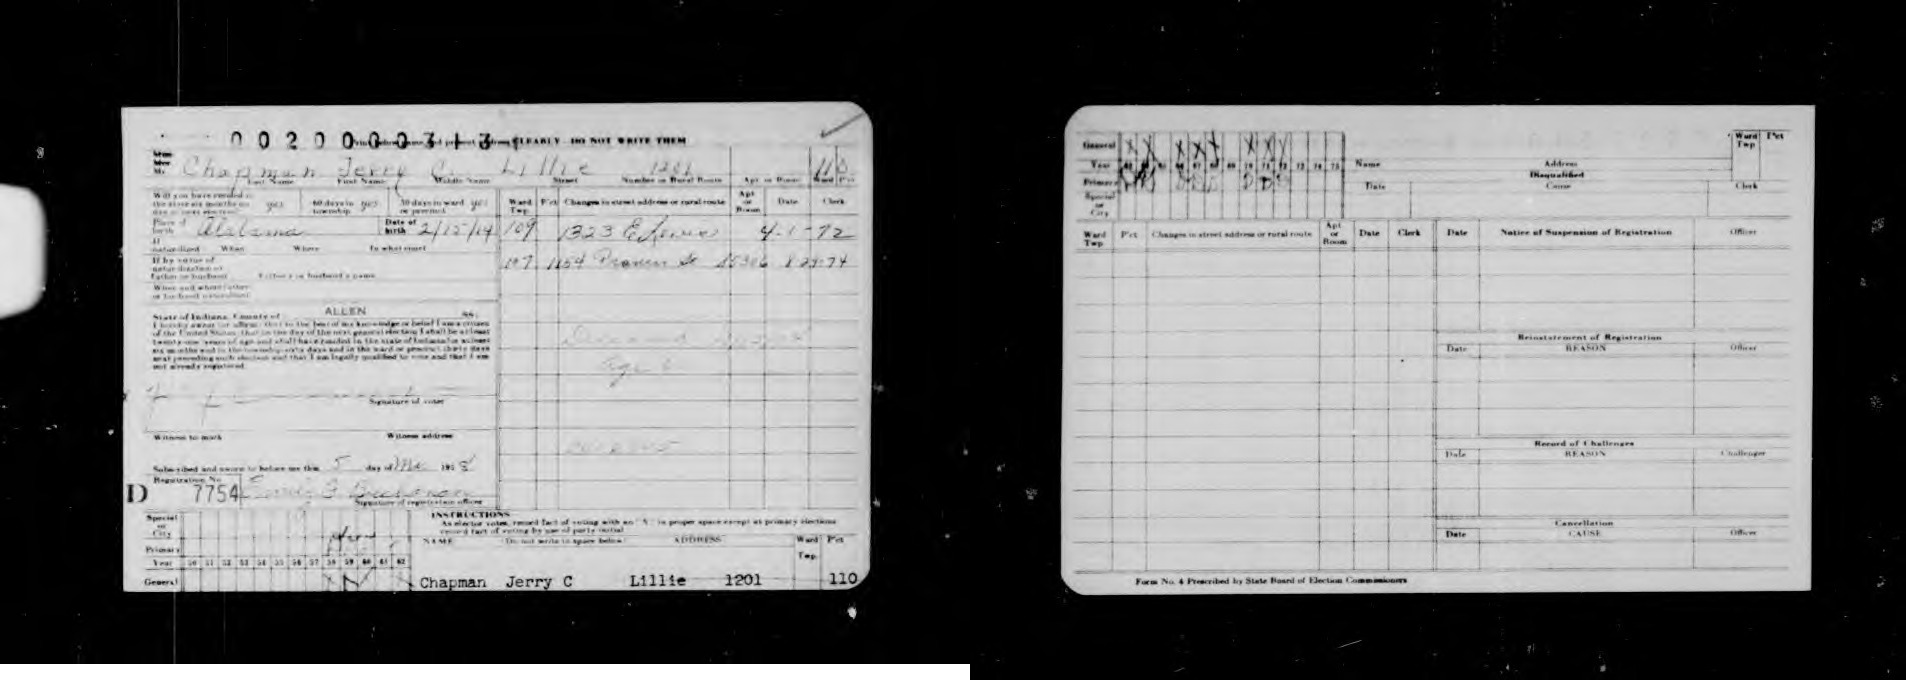 0020000313 CLEARLY - DO NOT WRITE THEM
Chapman Jerry C. Lillie 1201 110
Last Name First Name Middle Name Street Number or Rural Route Apt or Room Ward Pct
Will you have resided in the state six months on day of next election? yes 60 days in township yes 30 days in ward or precinct yes
Ward Twp. Pct Changes in street address or rural route Apt or Room Date Clerk
Place of birth Alabama Date of birth 2/15/14
109 1323 E Lewis 4-1-72
If naturalized When Where In what court
107 1154 8 29-74
If by virtue of naturalization of Father or husband Father's or husband's name
When and where father or husband naturalized
State of Indiana, County of ALLEN SS:
I hereby swear (or affirm) that to the best of my knowledge or belief I am a citizen
of the United States, that on the day of the next general election I shall be at least
twenty-one years of age and shall have resided in the state of Indiana for at least
six months and in the township sixty days and in the ward or precinct thirty days
next preceding such election and that I am legally qualified to vote and that I am
not already registered
Signature of voter
Witness to mark Witness address
Subscribed and sworn to before me this 5 day of Mar 1958
Registration No
D 7754
Signature of registration officer
INSTRUCTIONS
As elector votes, record fact of voting with an "X" in proper space except at primary elections
record fact of voting by use of party initial
Special or City
NAME (Do not write in space below) ADDRESS Ward Twp. Pct
Primary
Year 50 51 52 53 54 55 56 57 58 59 60 61 62
General
Chapman Jerry C Lillie 1201 110
General X X X X X X X
Ward Twp Pct
Year 62 63 65 66 67 68 69 70 71 72 73 74 75
Name Address
Disqualified
Primary
Date Cause Clerk
Special or City
Ward Twp. Pct Changes in street address or rural route Apt or Room Date Clerk
Date Notice of Suspension of Registration Officer
Reinstatement of Registration
Date REASON Officer
Record of Challenges
Date REASON Challenger
Cancellation
Date CAUSE Officer
Form No. 4 Prescribed by State Board of Election Commissioners